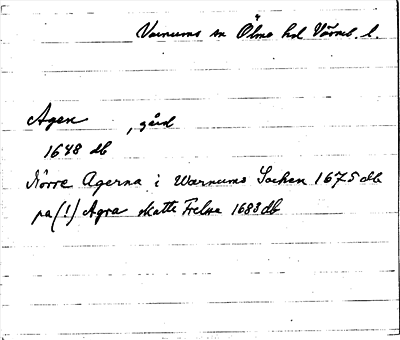 Varnums sn Ölme hd Värml. l.
Agen , gård
1648 db
Norre Agerna i Warnums Socken 1675 db
pa (!) Agra skatte Frelse 1683 db